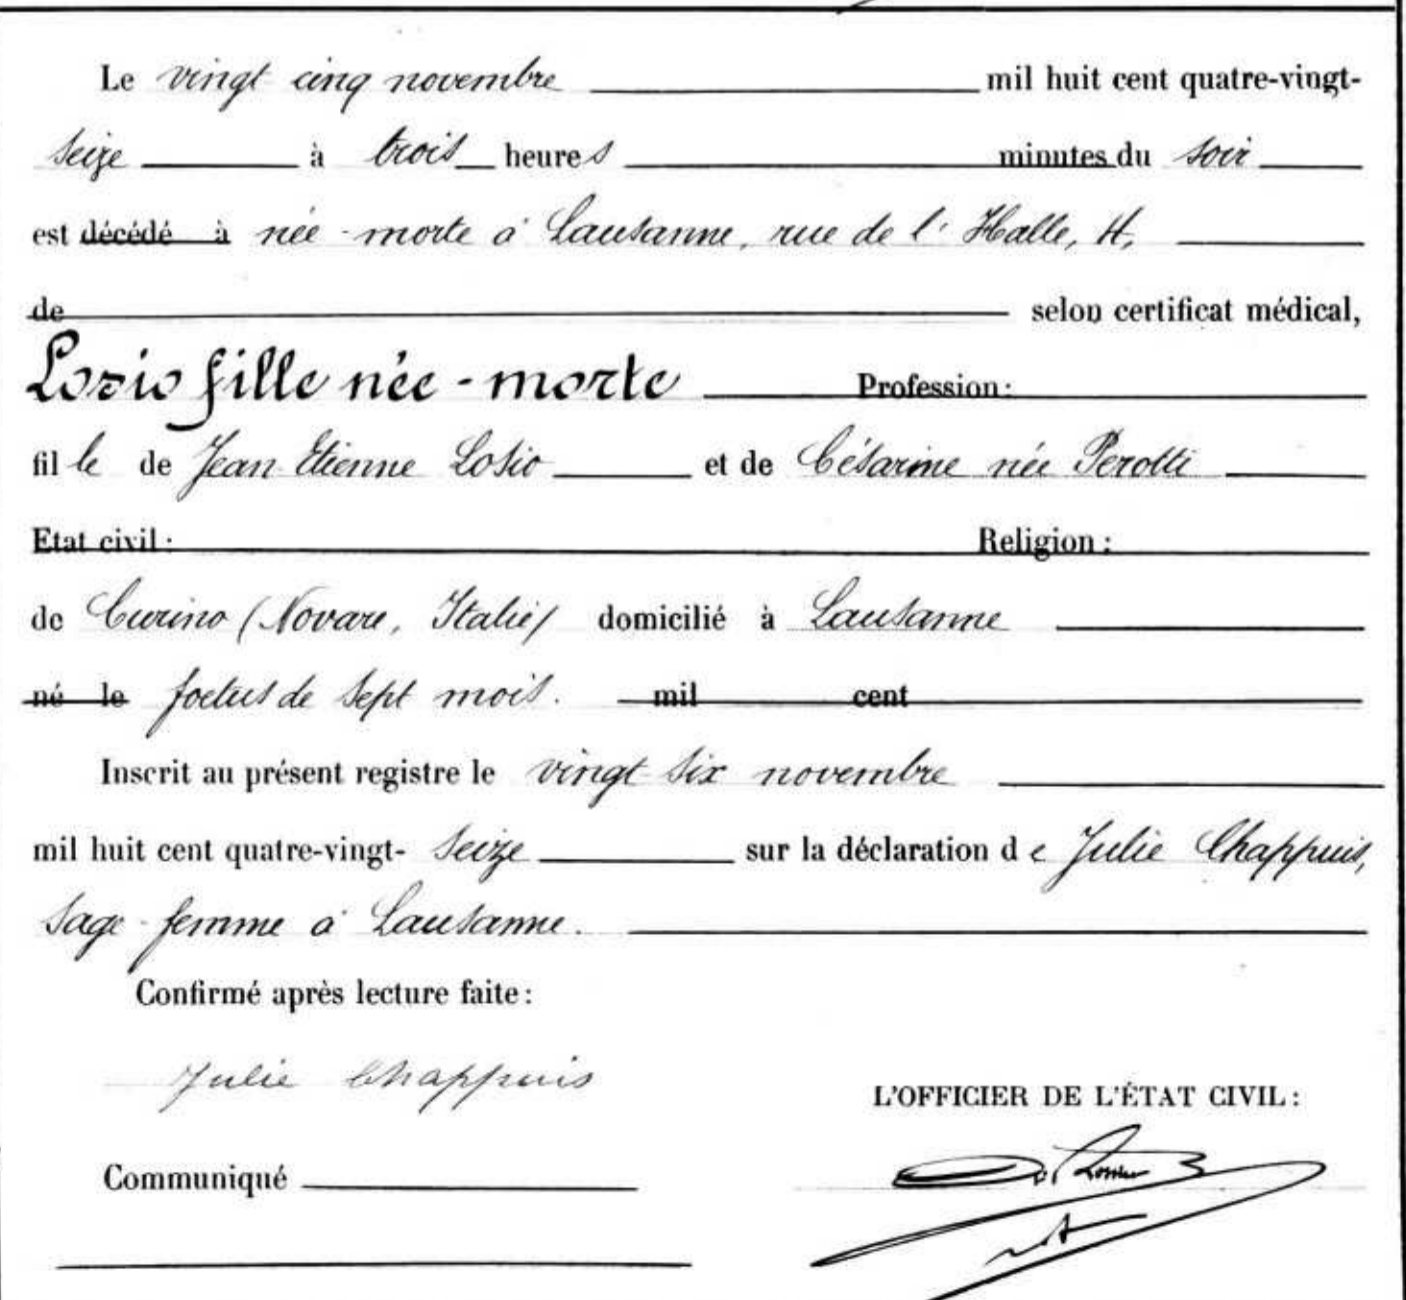 Le vingt cinq novembre mil huit cent quatre-vingt-
seize à trois heures minutes du soir
est décédé à née-morte à Lausanne, rue de l'Halle, 4,
de selon certificat médical,
Losio fille née-morte Profession:
fille de Jean Etienne Losio et de Césarine née Perotti
Etat civil: Religion:
de Curino (Novare, Italie) domicilié à Lausanne
né le foetus de sept mois. mil cent
Inscrit au présent registre le vingt-six novembre
mil huit cent quatre-vingt- seize sur la déclaration de Julie Chappuis,
sage-femme à Lausanne.
Confirmé après lecture faite:
Julie Chappuis
L'OFFICIER DE L'ÉTAT CIVIL:
Communiqué